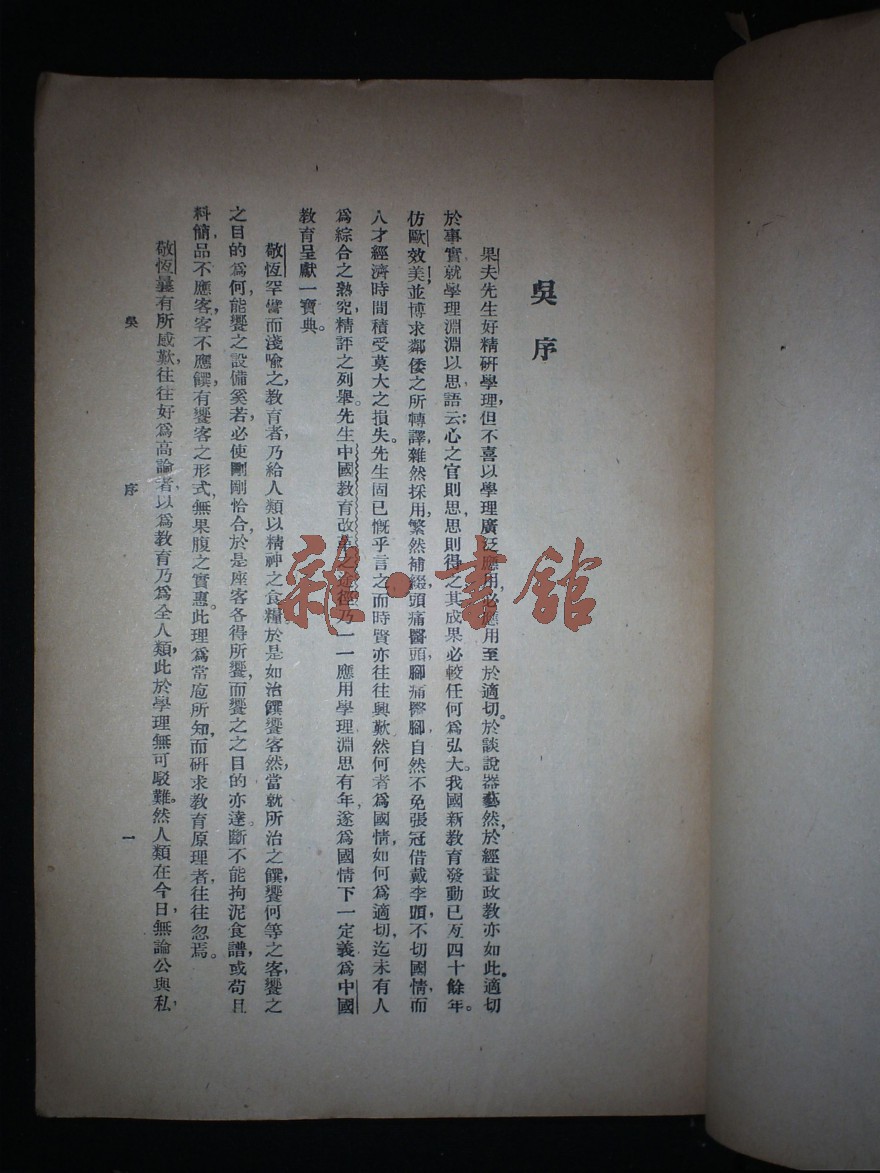 吳序
果夫先生好精研學理，但不喜以學理廣泛應用，必應用至於適切。於談說器藝然，於經畫政教亦如此。適切
於事實就學理淵淵以思，語云：心之官則思，思則得之，其成果必較任何爲弘大。我國新教育發動已亙四十餘年。
仿歐效美，並博求鄰倭之所轉譯，雜然採用，繁然補綴，頭痛醫頭，腳痛醫腳，自然不免張冠借戴李頭，不切國情，而
人才經濟時間積受莫大之損失。先生固已慨乎言之，而時賢亦往往興歎，然何者爲國情，如何爲適切，迄未有人
爲綜合之熱究，精評之列舉。先生中國教育改革之途徑，乃一一應用學理淵思有年，遂爲國情下一定義，爲中國
教育呈獻一寶典。
敬恆罕譬而淺喩之，教育者，乃給人類以精神之食糧，於是如治饌饗客然，當就所治之饌，饗何等之客，饗之
之目的爲何，能饗之設備奚若，必使剛剛恰合，於是座客各得所饗，而饗之之目的亦達。斷不能拘泥食譜，或苟且
料簡，品不應客，客不應饌，有饗客之形式，無果腹之實惠。此理爲當庖所知，而研求教育原理者，往往忽焉。
敬恆曩有所感歎，往往好爲高論者，以爲教育乃爲全人類，此於學理無可駁難。然人類在今日，無論公與私，
吳序 一
雜·書館